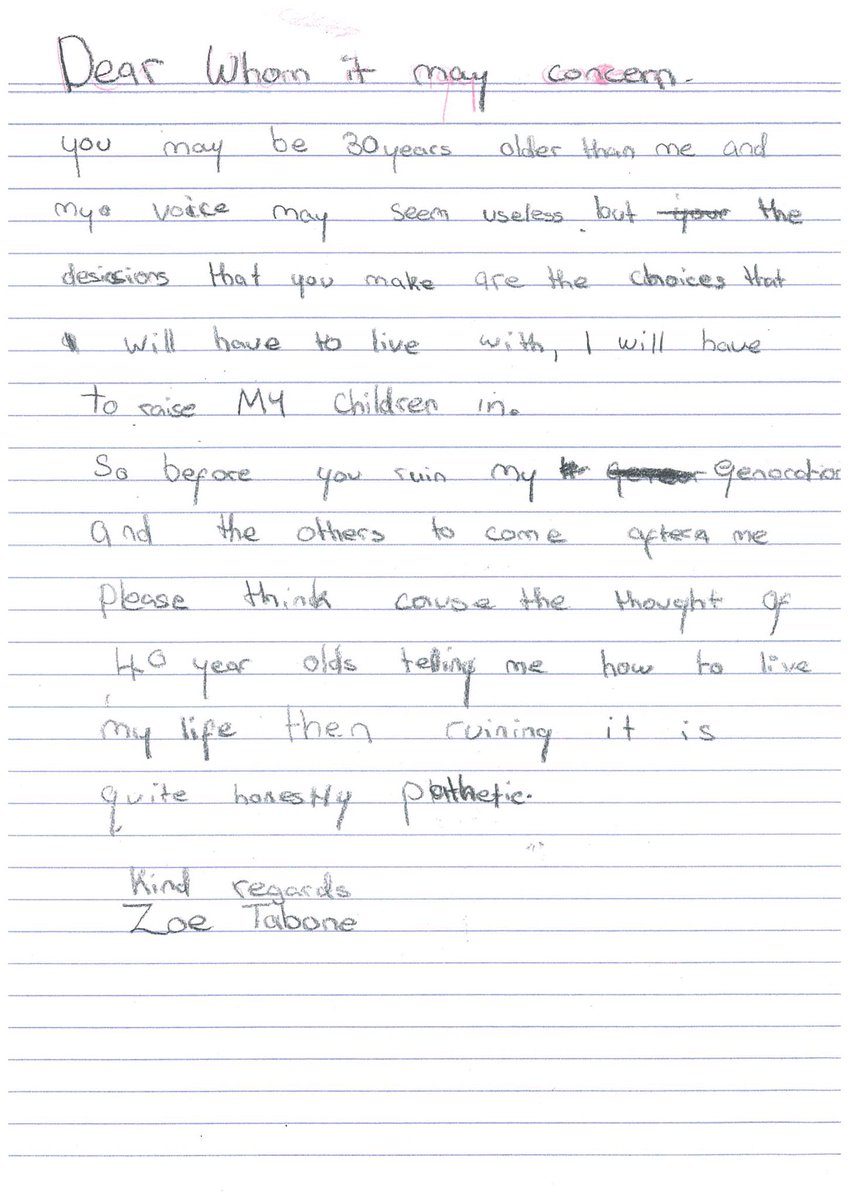 Dear Whom it may concern.
you may be 30years older than me and
my voice may seem useless. but your the
desicsions that you make are the choices that
I will have to live with, I will have
to raise MY Children in.
So before you ruin my genoration
and the others to come after me
please think cause the thought of
40 year olds telling me how to live
my life then ruining it is
quite honestly pathetic.
Kind regards
Zoe Tabone